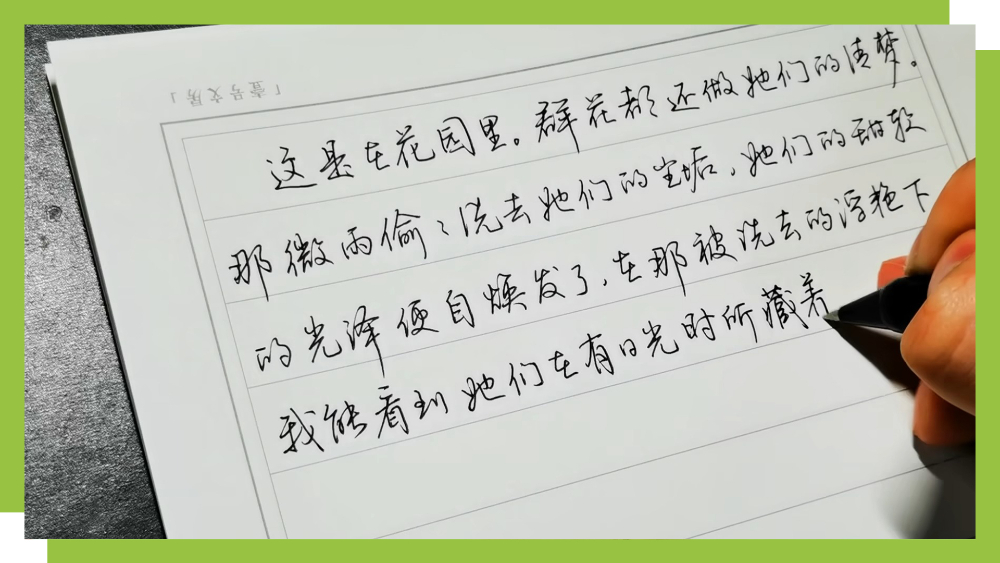 「壹号文房」
这是在花园里。群花都还做她们的清梦。
那微雨偷々洗去她们的尘垢，她们的甜软
的光泽便自焕发了，在那被洗去的浮艳下
我能看到她们在有日光时所藏着